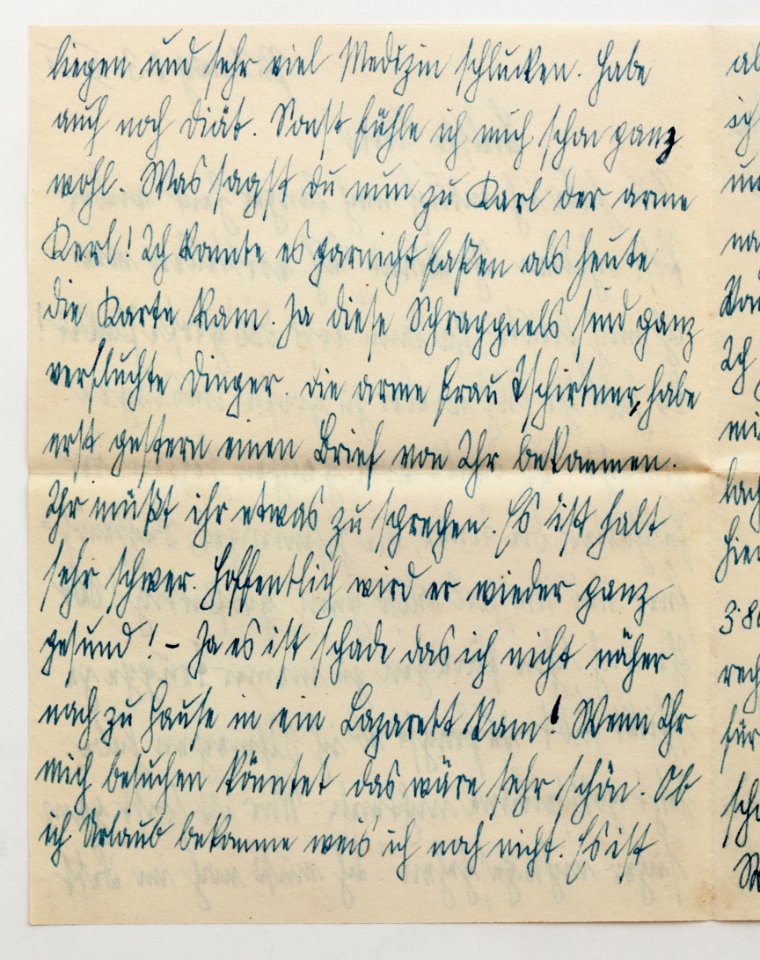 liegen und sehr viel Medizin schlucken. Habe
auch noch Diät. Sonst fühle ich mich schon ganz
wohl. Was sagst du nun zu Karl der arme
Kerl! Ich konnte es garnicht faßen als heute
die Karte kam. Ja diese Schrappnels sind ganz
verfluchte Dinger. Die arme Frau Tschirtner, habe
erst gestern einen Brief von Ihr bekommen.
Ihr müßt ihr etwas zu sprechen. Es ist halt
sehr schwer. Hoffentlich wird er wieder ganz
gesund! – Ja es ist schade das ich nicht näher
nach zu Hause in ein Lazarett kam! Wenn Ihr
mich besuchen könntet das wäre sehr schön. Ob
ich Urlaub bekomme weis ich noch nicht. Es ist
al
ich
un
na
Ich
mi
lach
hier
380
rech
für
sch